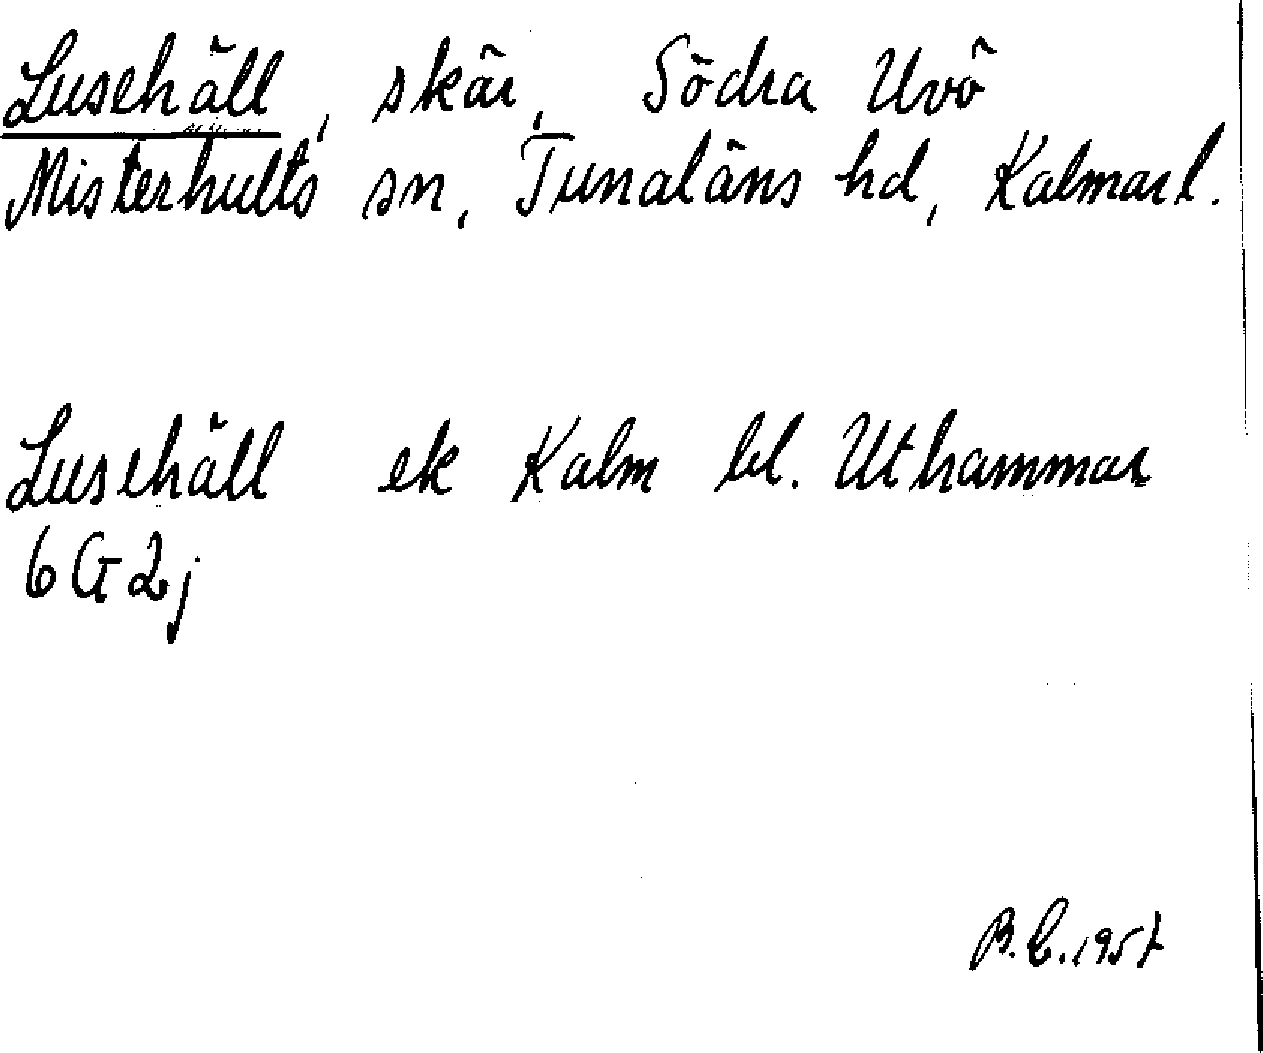 Lusehäll, skär, Södra Uvö
Misterhults sn, Tunaläns hd, Kalmar l.
Lusehäll ek Kalm bl. Uthammar
6G2j
B.C. 1957